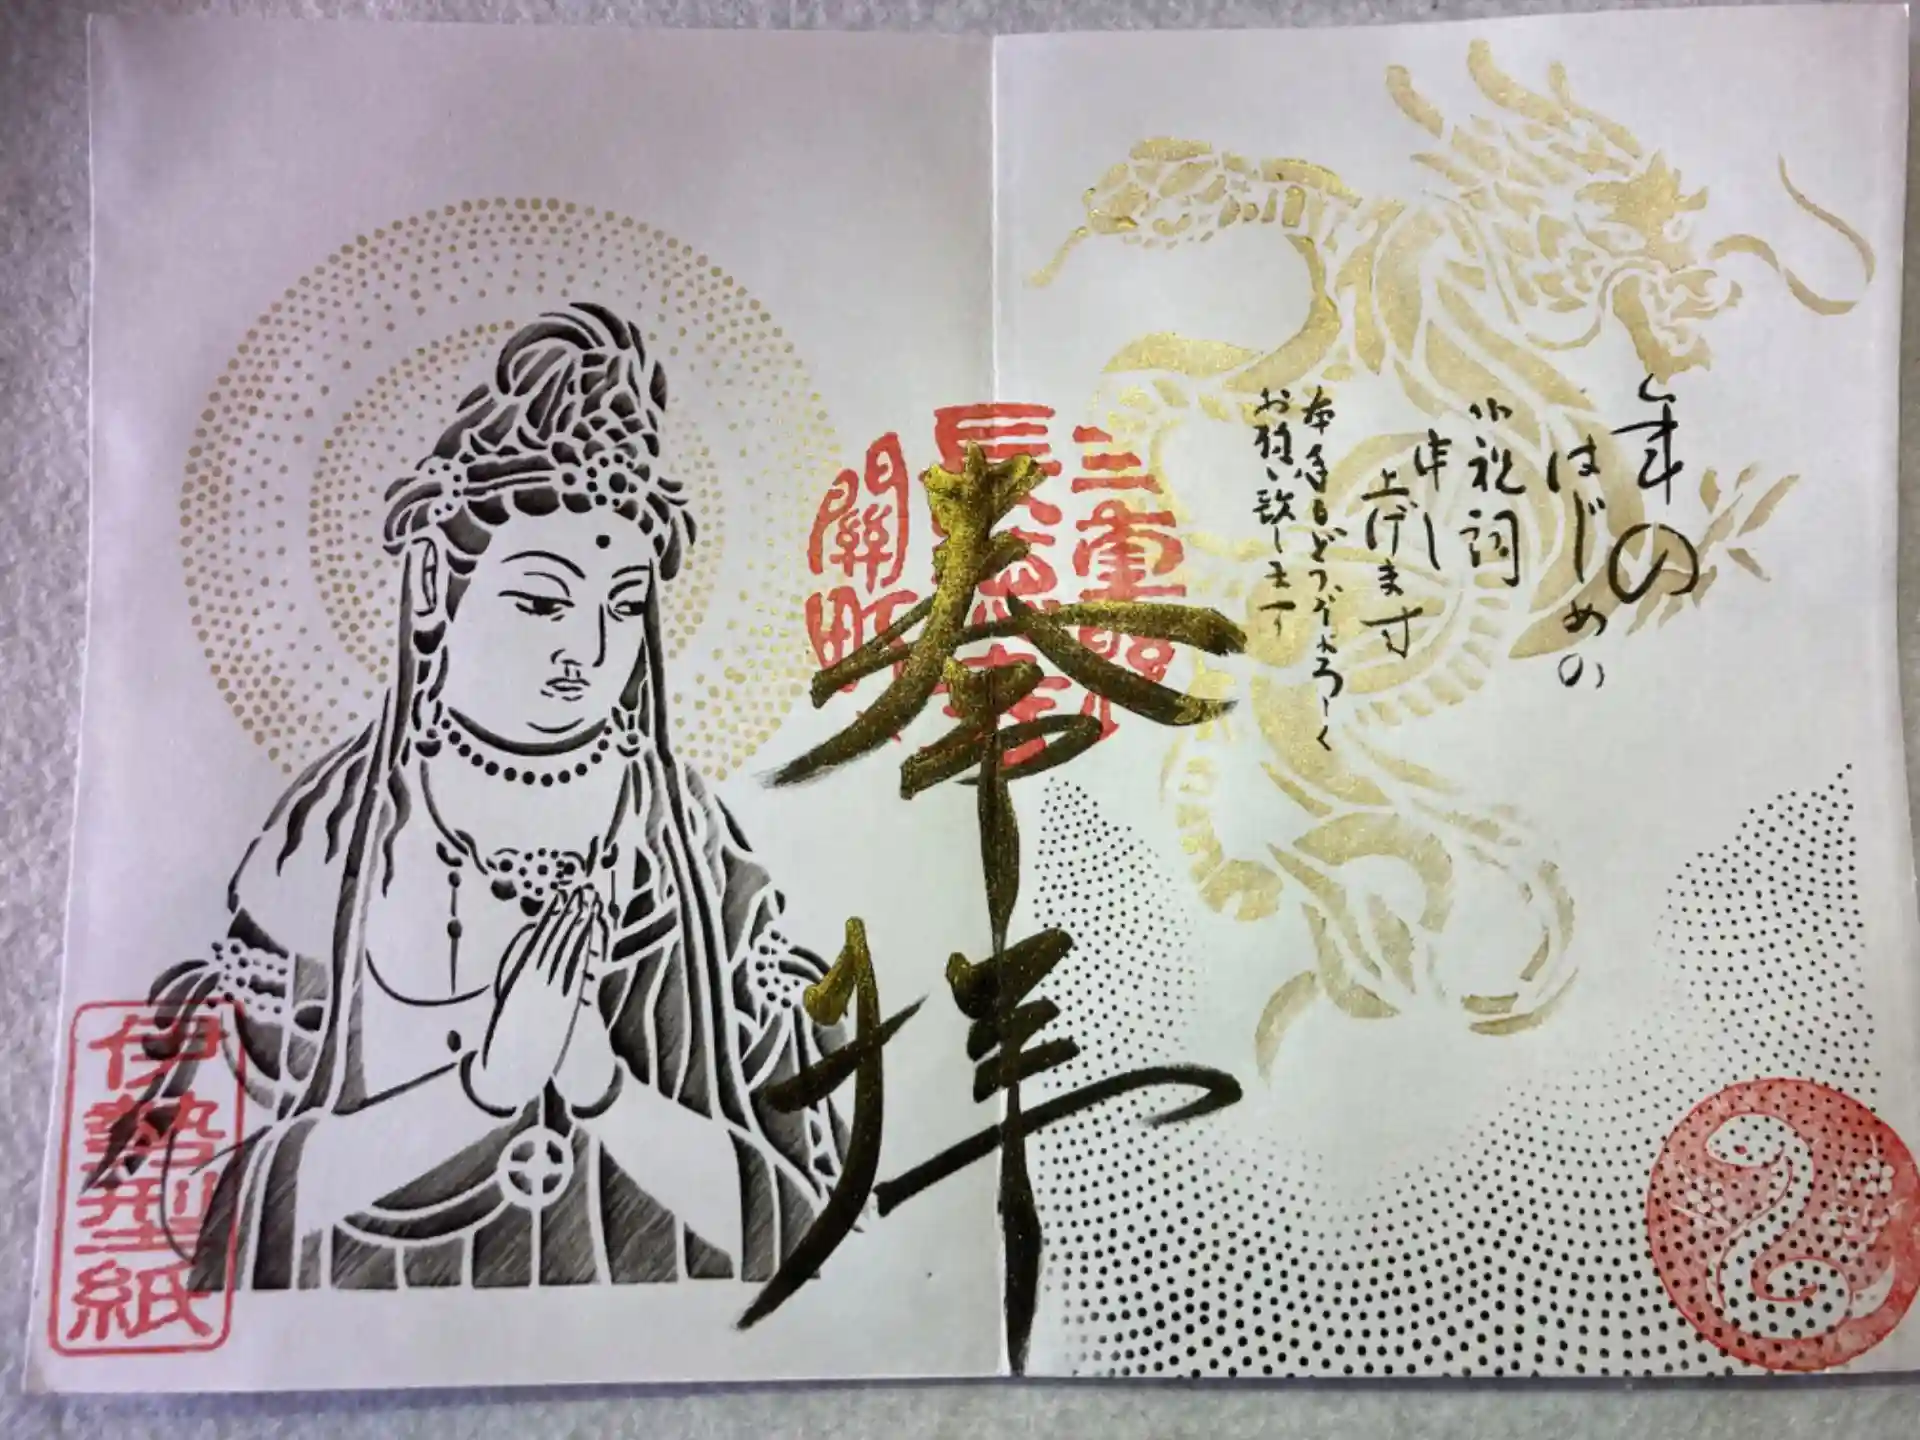 年の
はじめの
御祝詞
申し
上げます
本年もどうぞよろしく
お願い致します
奉拝
三重縣
關町
伊勢型紙